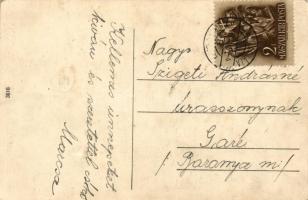 Kellemes ünnepeket
kíván és szeretettel
Marcsa
Nagys.
Szigeti Andrásné
úrasszonynak
Garé
/Baranya m/
2
MAGYAR KIR. POSTA